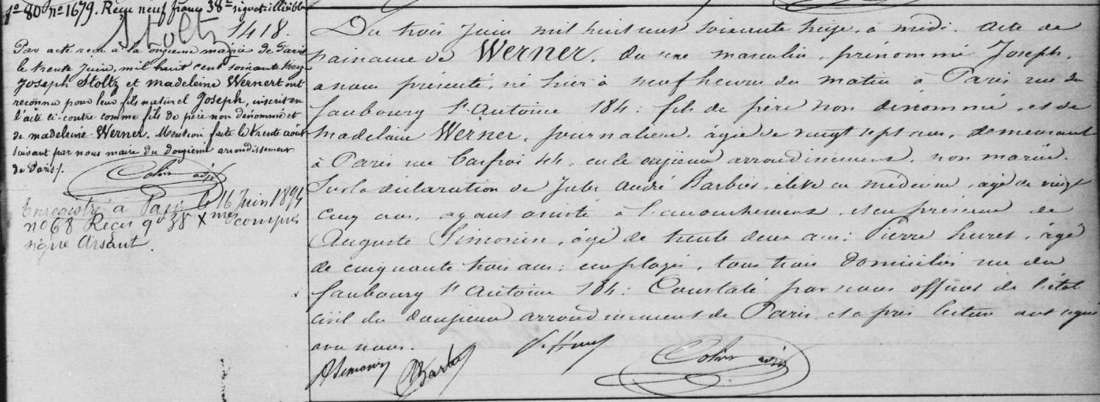 fo 80 no 1679. Reçu neuf francs 38 cs signé: illisible
Stoltz
1418.
Par acte reçu à la onzième mairie de Paris
le trente Juin, mil huit cent soixante treize
Joseph Stoltz et madeleine Wernert ont
reconnu pour leur fils naturel Joseph, inscrit en
l'acte ci-contre comme fils de père non dénommé et
de madeleine Werner. Mention faite le trente août
suivant par nous maire du douzième arrondissement
de Paris.
Enregistré à Paris le 16 Juin 1894
no 68 Reçu 9f 38 compris
signé Arsant.
Du trois Juin mil huit cent soixante treize, à midi. Acte de
naissance de Werner, du sexe masculin, prénommé Joseph,
à nous présenté, né hier à neuf heures du matin à Paris rue du
faubourg St Antoine 184: fils de père non dénommé, et de
Madelaine Werner, journalière, âgée de vingt sept ans, demeurant
à Paris rue 44, en le onzième arrondissement, non mariée.
Sur la déclaration de Jules André Barbier, élève en médecine, âgé de vingt
cinq ans, ayant assisté à l'accouchement, et en présence de
Auguste Simonin, âgé de trente deux ans: Pierre huret, âgé
de cinquante trois ans: employés, tous trois domiciliés rue du
faubourg St Antoine 184: Constaté par nous officier de l'état
civil du douzième arrondissement de Paris, et après lecture ont signé
avec nous.
ASimonin Barbier